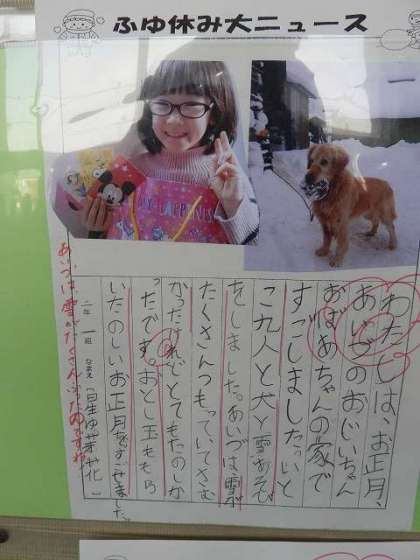 ふゆ休み大ニュース
わたしは、お正月、
あいづのおじいちゃん
おばあちゃんの家で
すごしました。いと
こ九人と犬と雪あそび
をしました。あいづは、雪が
たくさんつもっていてさむ
かったけれどとてもたのしか
ったです。おとし玉ももら
いたのしいお正月をすごせました。
二年 一組 なまえ
あいづは、雪がたくさんふったのですね。